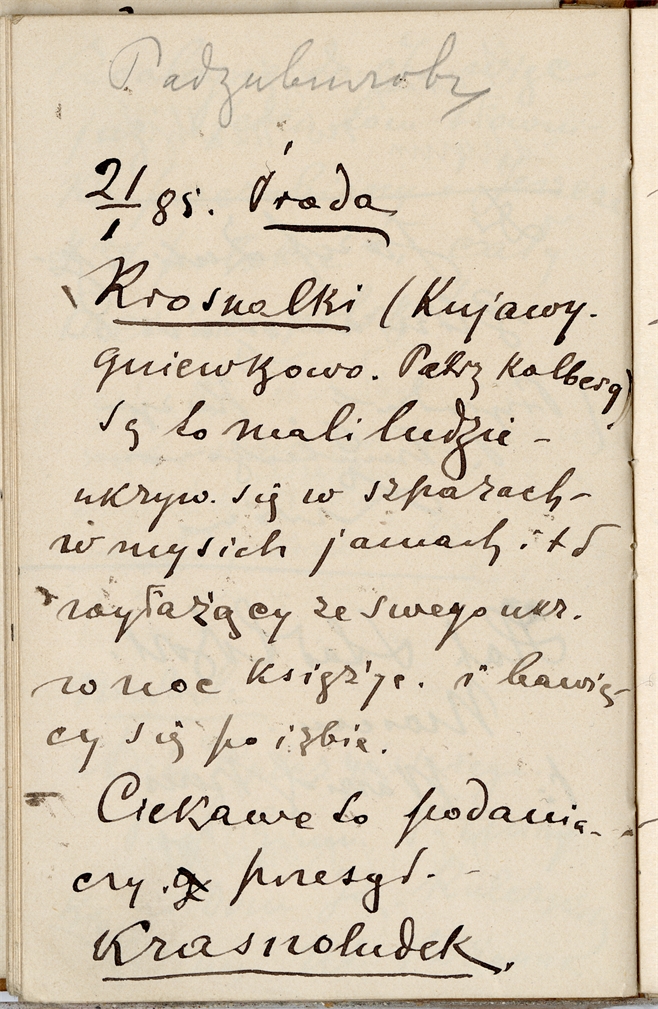 21/1 85. Środa
Krosnalki (Kujawy.
gniewkowo. Patrz Kolberg)
Są to mali ludzie –
ukryw. się w szparach –
w mysich jamach. itd
wyłażący ze swego ukr.
w noc księżyc. i bawią-
cy się po izbie.
Ciekawe to podania –
czy przesąd. –
Krasnoludek.